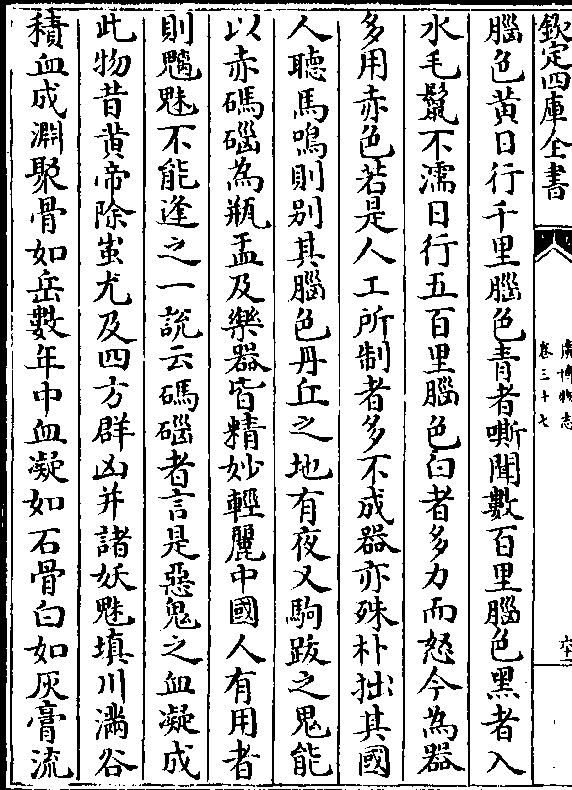 欽定四庫全書
廣博物志
卷三十七
腦色黄日行千里腦色青者嘶聞數百里腦色黑者入
水毛鬛不濡日行五百里腦色白者多力而怒今為器
多用赤色若是人工所制者多不成器亦殊朴拙其國
人聽馬鳴則别其腦色丹丘之地有夜叉駒跋之鬼能
以赤碼碯為瓶盂及樂器皆精妙輕麗中國人有用者
則魑魅不能逢之一說云碼碯者言是惡鬼之血凝成
此物昔黄帝除蚩尤及四方群凶并諸妖魅填川滿谷
積血成淵聚骨如岳數年中血凝如石骨白如灰膏流